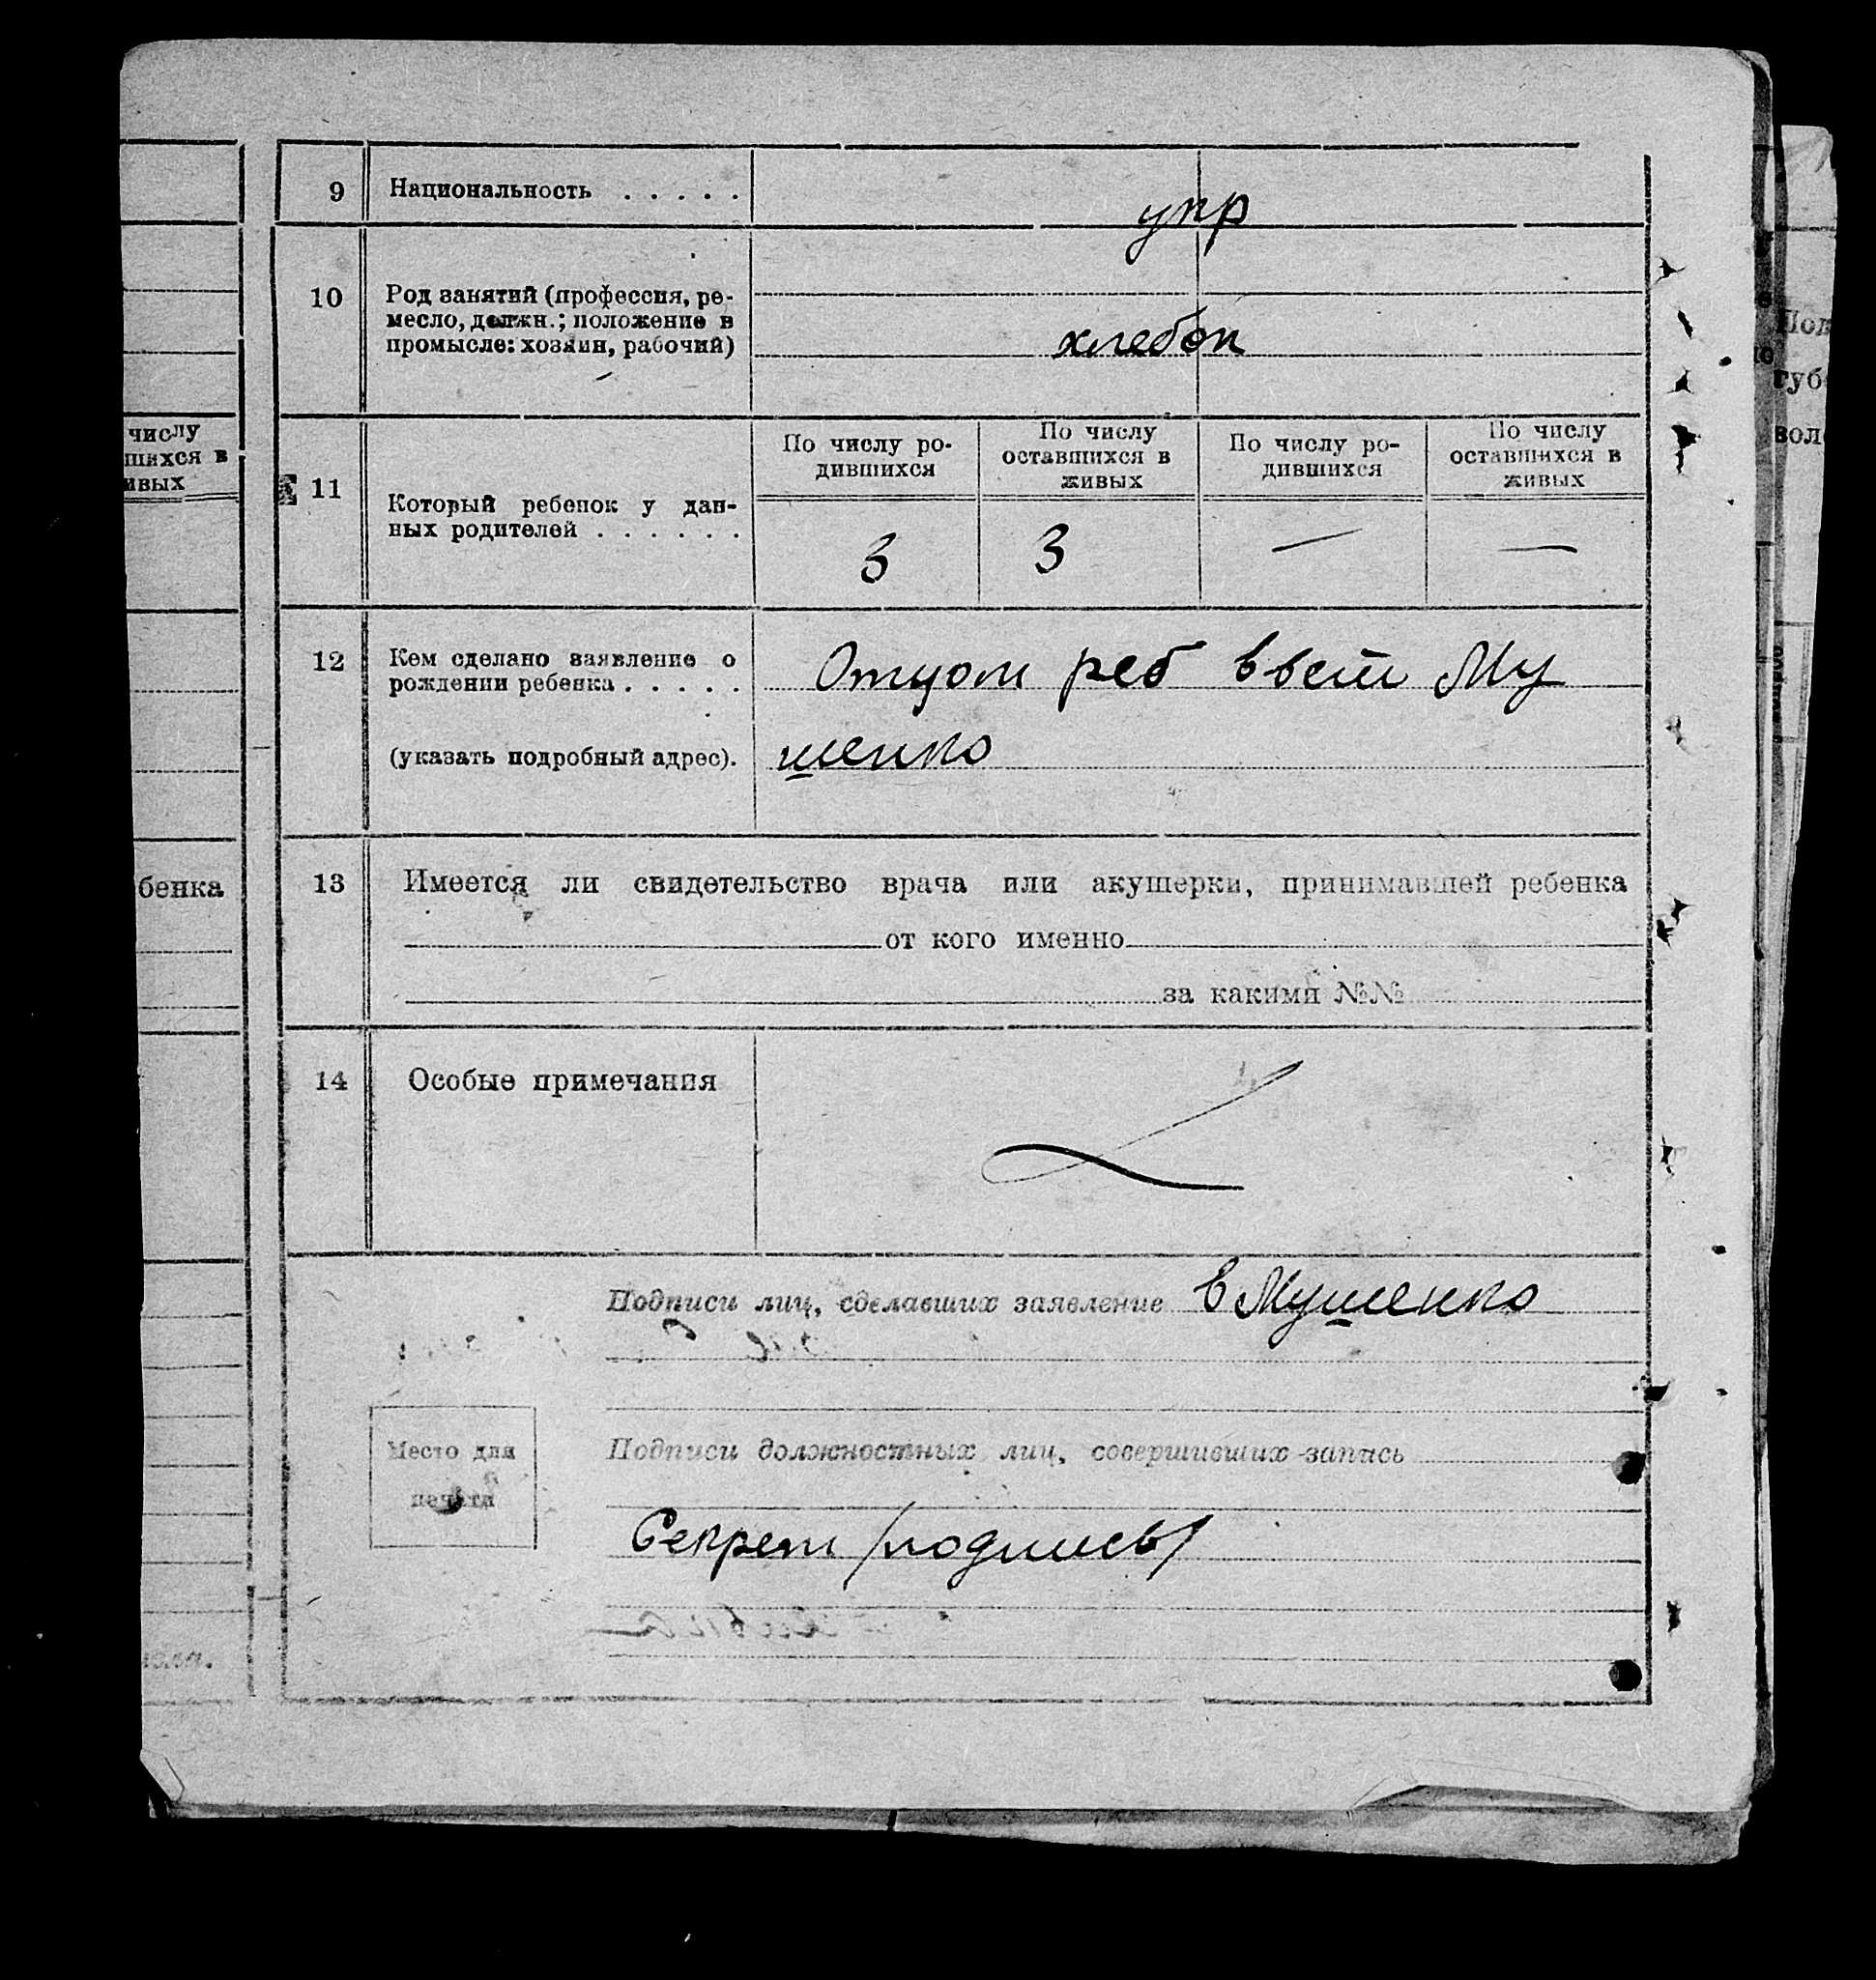 9 Национальность . . . . .
укр
10 Род занятий (профессия, ре-
месло, должн.; положение в
промысле: хозяин, рабочий)
хлебоп
числу
шихся в
ивых
11 Который ребенок у дан-
ных родителей . . . . . .
По числу ро-
дившихся
По числу
оставшихся в
живых
По числу ро-
дившихся
По числу
оставшихся в
живых
3 3 — —
12 Кем сделано заявление о
рождении ребенка . . . . .
(указать подробный адрес).
Отцом реб Му
шенко
бенка
13 Имеется ли свидетельство врача или акушерки, принимавшей ребенка
от кого именно
за какими №№
14 Особые примечания
Подписи лиц, сделавших заявление Мушенко
Место для
печати
Подписи должностных лиц, совершивших запись
Секрет /подпись/
Пол
губ
вол